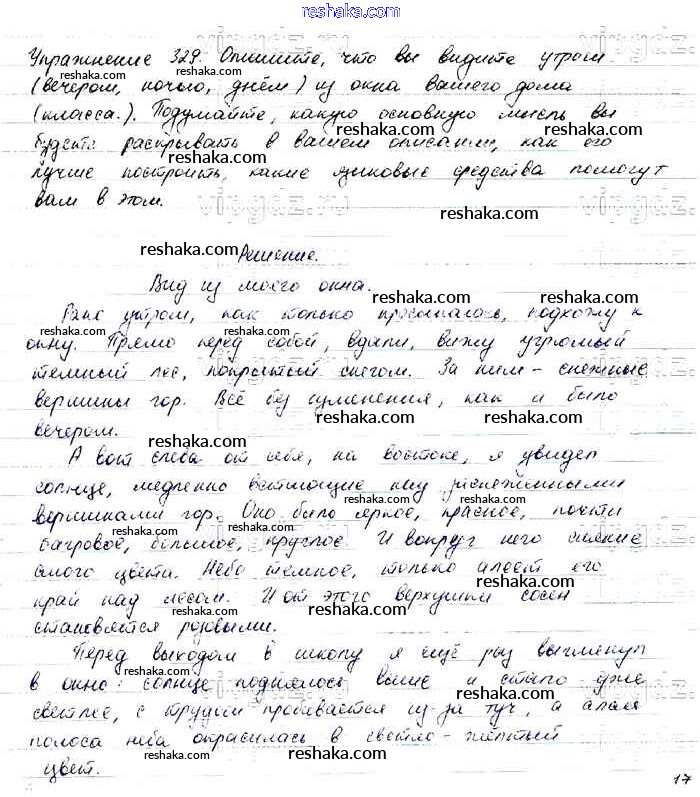 reshaka.com
Упражнение 329. Опишите, что вы видите утром
(вечером, ночью, днём) из окна вашего дома
(класса.). Подумайте, какую основную мысль вы
будете раскрывать в вашем описании, как его
лучше построить, какие языковые средства помогут
вам в этом.
Решение.
Вид из моего окна.
Рано утром, как только просыпаюсь, подхожу к
окну. Прямо перед собой, вдали, вижу угрюмый
темный лес, покрытый снегом. За ним - снежные
вершины гор. Всё без изменения, как и было
вечером.
А вот слева от себя, на востоке, я увидел
солнце, медленно встающее над заснеженными
вершинами гор. Оно было яркое, красное, почти
багровое, большое, круглое. И вокруг него сияние
алого цвета. Небо темное, только алеет его
край над лесом. И от этого верхушки сосен
становятся розовыми.
Перед выходом в школу я ещё раз выглянул
в окно: солнце поднялось выше и стало уже
светлее, с трудом пробивается из-за туч, а алая
полоса неба окрасилась в светло-жёлтый
цвет.
17